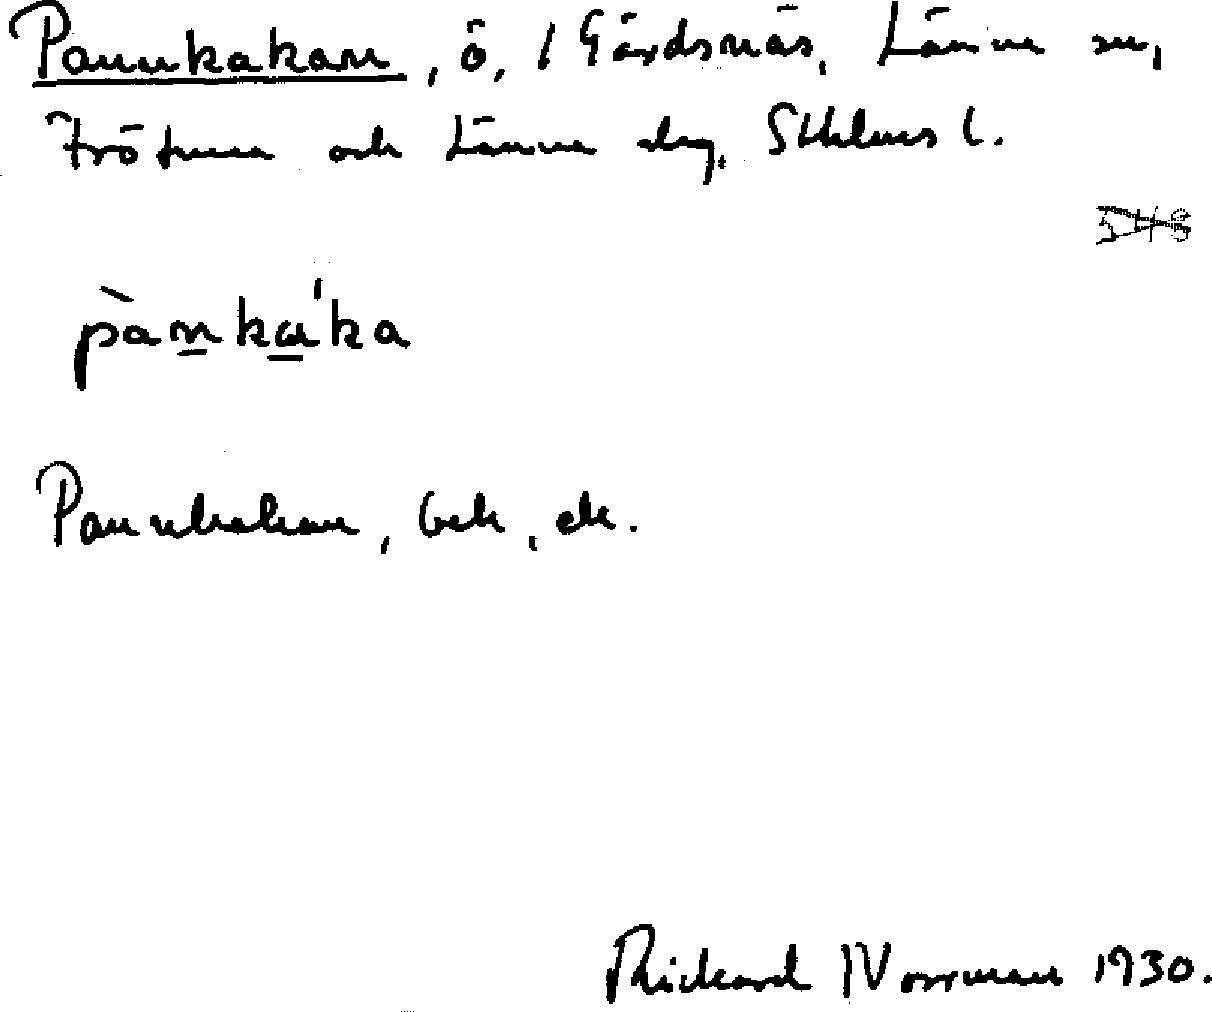 Pannkakan, ö, / Gärdsnäs, Länna sn,
Frötuna och Länna skg. Sthlms l.
pànka'ka
Pannkakan, Gek, ek.
Rickard Norrman 1930.